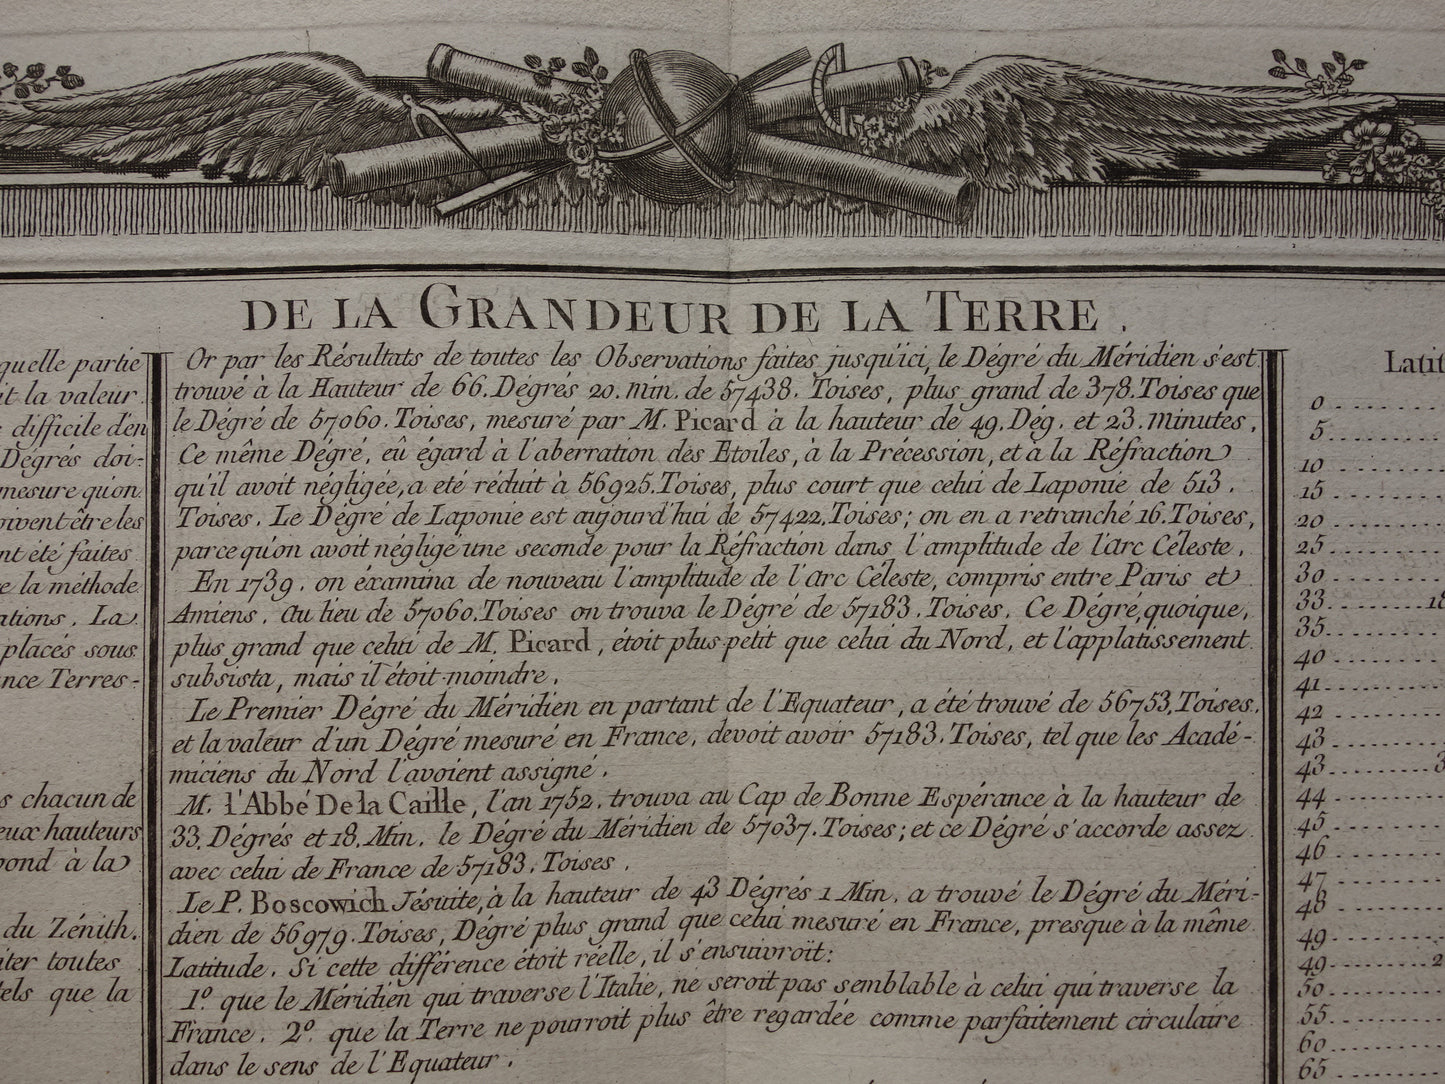 DE LA GRANDEUR DE LA TERRE.
quelle partie
it la valeur.
difficile d'en
Dégrés doi-
mesure qu'on
oivent être les
nt été faites
e la méthode
ations. La
placés sous
nce Terres-
s chacun de
eux hauteurs
pond à la
du Zénith.
iter toutes
tels que la
Or par les Résultats de toutes les Observations faites jusqu'ici, le Dégré du Méridien s'est
trouvé à la Hauteur de 66. Dégrés 20. min. de 57438. Toises, plus grand de 378. Toises que
le Dégré de 57060. Toises, mesuré par M. Picard à la hauteur de 49. Dég. et 23. minutes.
Ce même Dégré, eû égard à l'aberration des Etoiles, à la Précession, et à la Réfraction
qu'il avoit négligée, a eté réduit à 56925. Toises, plus court que celui de Laponie de 513.
Toises. Le Dégré de Laponie est aujourd'hui de 57422. Toises; on en a retranché 16. Toises,
parcequ'on avoit négligé une seconde pour la Réfraction dans l'amplitude de l'Arc Céleste.
En 1739. on éxamina de nouveau l'amplitude de l'Arc Céleste, compris entre Paris et
Amiens. Au lieu de 57060. Toises on trouva le Dégré de 57183. Toises. Ce Dégré, quoique,
plus grand que celui de M. Picard, étoit plus petit que celui du Nord, et l'applatissement
subsista, mais il étoit moindre.
Le Premier Dégré du Méridien en partant de l'Equateur, a été trouvé de 56753. Toises.
et la valeur d'un Dégré mesuré en France, devoit avoir 57183. Toises, tel que les Acadé-
miciens du Nord l'avoient assigné.
M. l'Abbé De la Caille, l'an 1752. trouva au Cap de Bonne Espérance à la hauteur de
33. Dégrés et 18. Min. le Dégré du Méridien de 57037. Toises; et ce Dégré s'accorde assez
avec celui de France de 57183. Toises.
Le P. Boscowich Jésuite, à la hauteur de 43 Dégrés 1 Min. a trouvé le Dégré du Méri-
dien de 56979. Toises, Dégré plus grand que celui mesuré en France, presque à la même
Latitude. Si cette différence étoit réelle, il s'ensuivroit:
1º. que le Méridien qui traverse l'Italie, ne seroit pas semblable à celui qui traverse la
France. 2º. que la Terre ne pourroit plus être regardée comme parfaitement circulaire
dans le sens de l'Equateur.
Latit
0
5
10
15
20
25
30
33 18
35
40
41
42
43
43 3
44
45
46
47
48
49
49 2
50
55
60
65